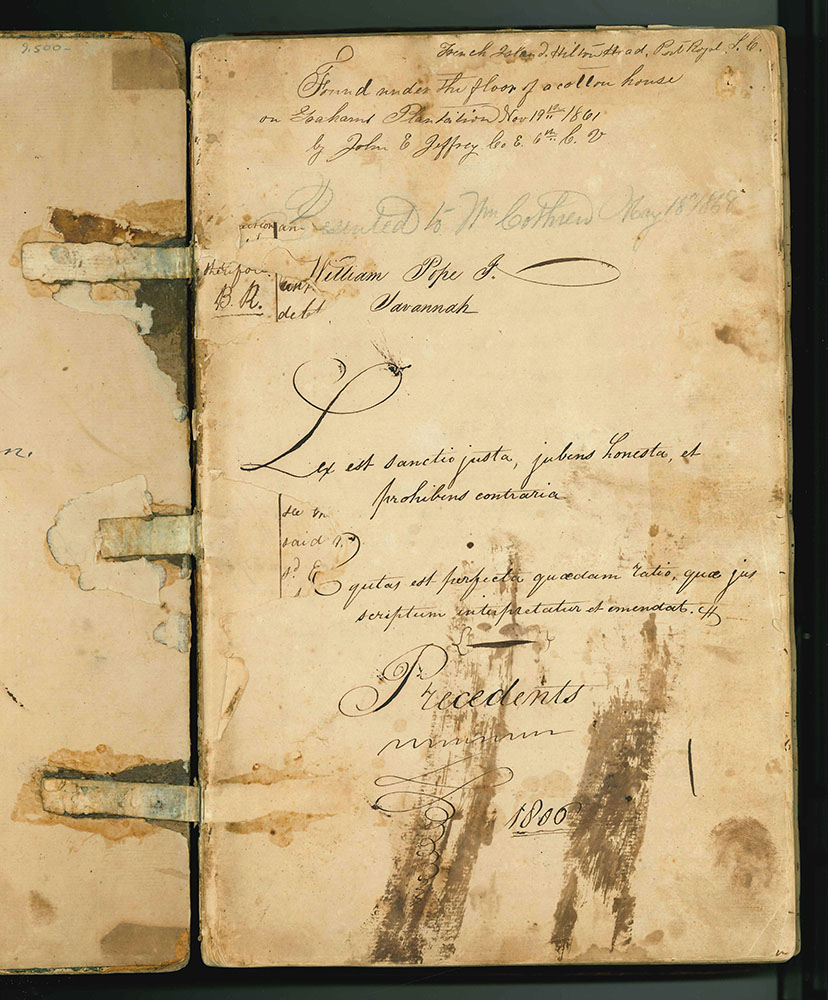 9,500-
French Island, Hilton Head, Port Royal S. C.
Found under the floor of a cotton house
on Grahams Plantation Nov 19th 1861
by John E Jeffrey Co E. 6th C. V
Presented to Wm Cothren May 18th 1868
an
therefore
B. R.
debt
William Pope J.
Savannah
Lex est sanctio justa, jubens honesta, et
prohibens contraria
said
Equitas est perfecta quædam ratio, quæ jus
scriptum interpretatur et emendat.
Precedents
1806
n.